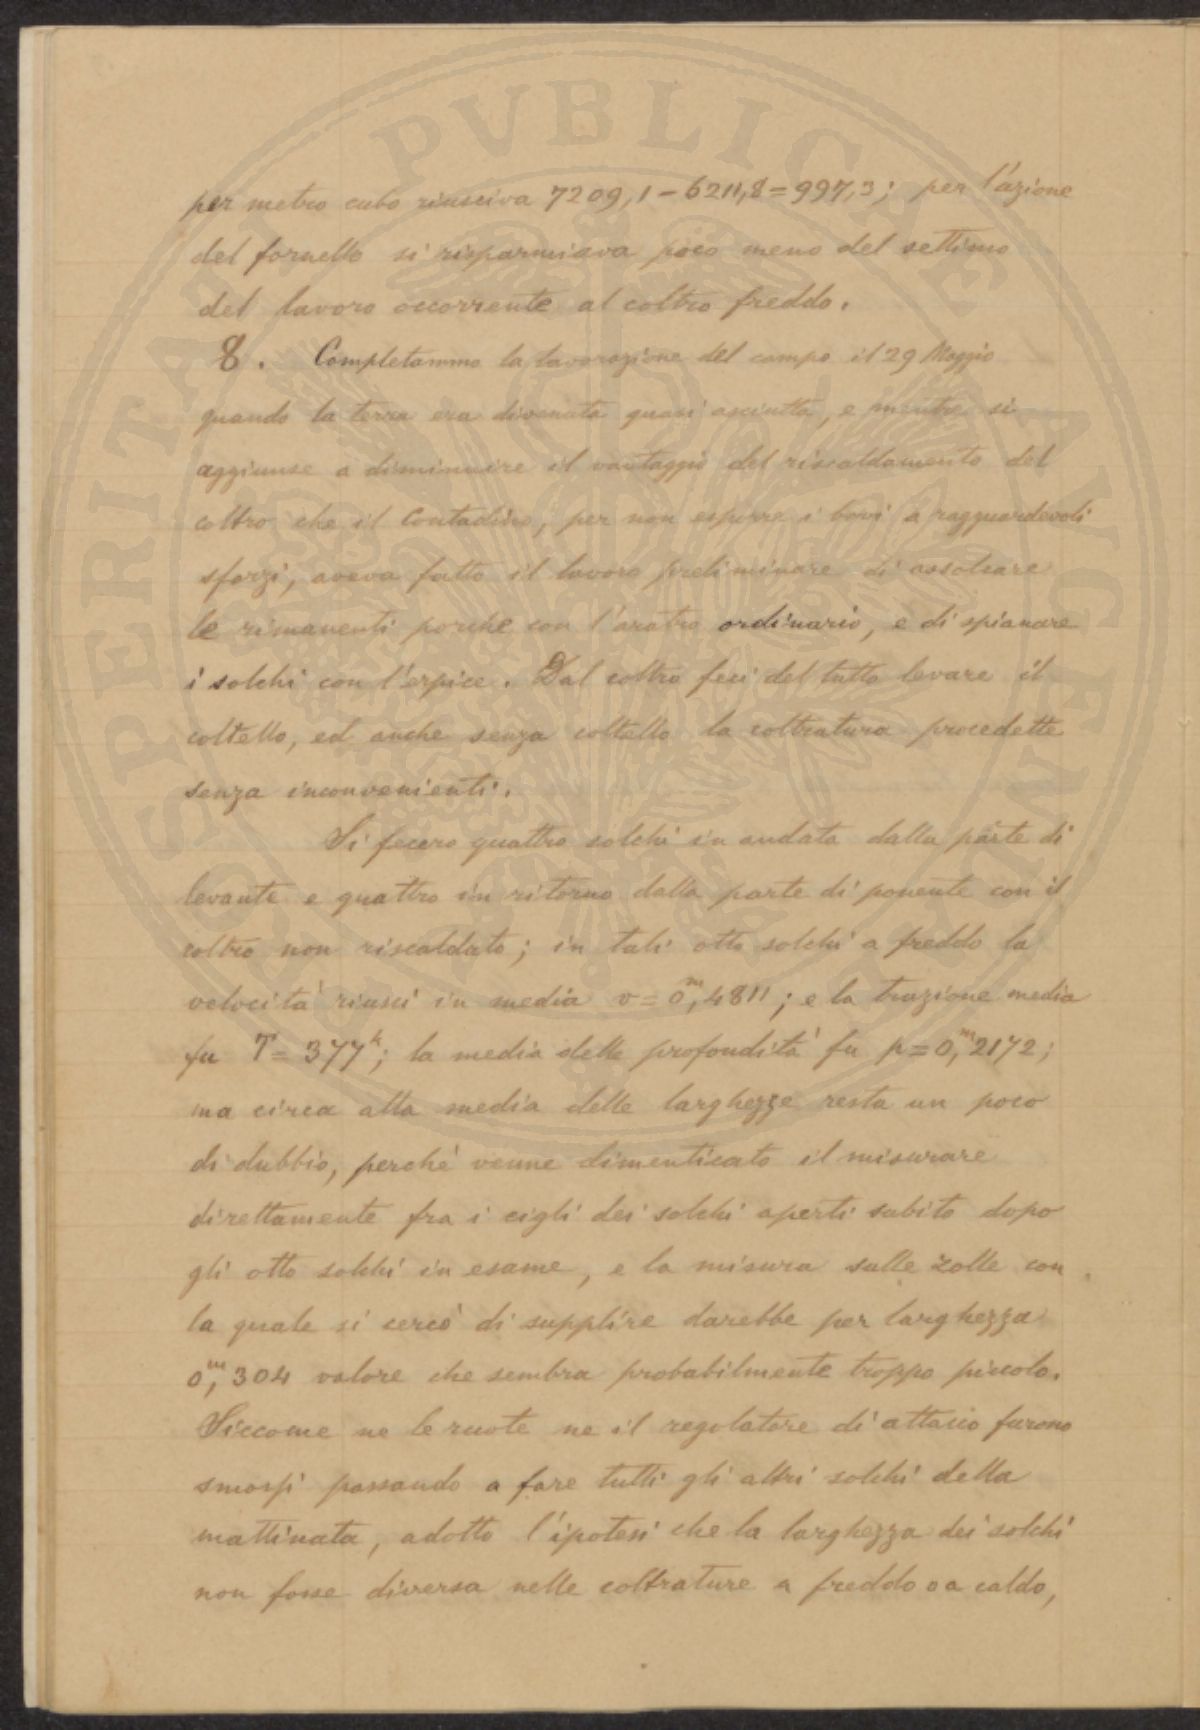 per metro cubo riusciva 7209,1 – 6211,8 = 997,3; per l'azione
del fornello si risparmiava poco meno del settimo
del lavoro occorrente al coltro freddo.
8. Completammo la lavorazione del campo il 29 Maggio
quando la terra era divenuta quasi asciutta, e mentre si
aggiunse a diminuire il vantaggio del riscaldamento del
coltro che il Contadino, per non esporre i bovi a ragguardevoli
sforzi, aveva fatto il lavoro preliminare di assolcare
le rimanenti porche con l'aratro ordinario, e di spianare
i solchi con l'erpice. Dal coltro feci del tutto levare il
coltello, ed anche senza coltello la coltratura procedette
senza inconvenienti.
Si fecero quattro solchi in andata dalla parte di
levante e quattro in ritorno dalla parte di ponente con il
coltro non riscaldato; in tali otto solchi a freddo la
velocità riuscì in media v = 0,ᵐ4811; e la trazione media
fu T = 377ᵏ; la media delle profondità fu p = 0,ᵐ2172;
ma circa alla media delle larghezze resta un poco
di dubbio, perchè venne dimenticato il misurare
direttamente fra i cigli dei solchi aperti subito dopo
gli otto solchi in esame, e la misura sulle zolle con
la quale si cercò di supplire darebbe per larghezza
0,ᵐ304 valore che sembra probabilmente troppo piccolo.
Siccome ne le ruote ne il regolatore di attacco furono
smossi passando a fare tutti gli altri solchi della
mattinata, adotto l'ipotesi che la larghezza dei solchi
non fosse diversa nelle coltrature a freddo o a caldo,
PROSPERITATI PVBLICAE AVGENDAE